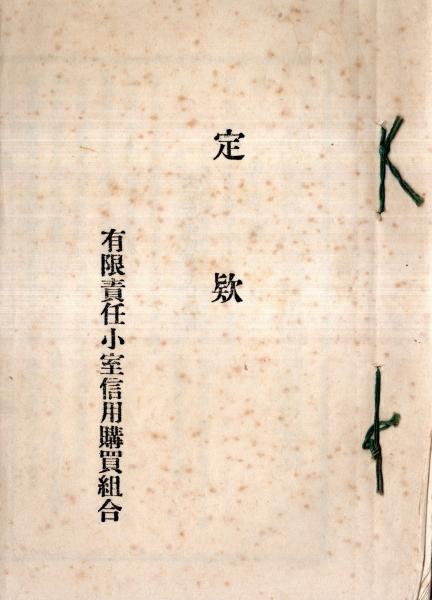 定欵
有限責任小室信用購買組合